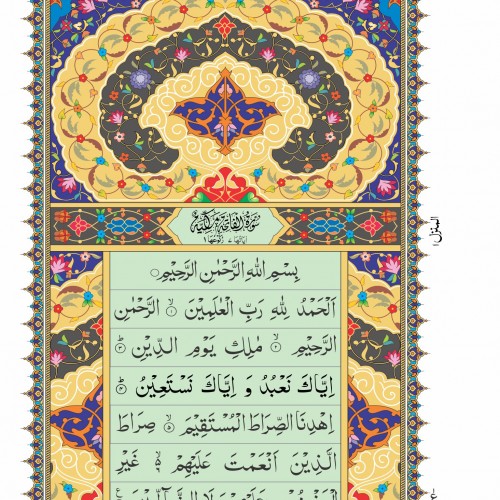 سُوْرَةُ الْفَاتِحَةِ مَكِّيَّةٌ
اٰيَاتُهَا ٧ رُكُوْعُهَا ١
بِسْمِ اللهِ الرَّحْمٰنِ الرَّحِيْمِ
اَلْحَمْدُ لِلّٰهِ رَبِّ الْعٰلَمِيْنَ ۙ ١ الرَّحْمٰنِ
الرَّحِيْمِ ۙ ٢ مٰلِكِ يَوْمِ الدِّيْنِ ؕ ٣
اِيَّاكَ نَعْبُدُ وَ اِيَّاكَ نَسْتَعِيْنُ ؕ ٤
اِهْدِنَا الصِّرَاطَ الْمُسْتَقِيْمَ ۙ ٥ صِرَاطَ
الَّذِيْنَ اَنْعَمْتَ عَلَيْهِمْ ۙ ٦ غَيْرِ
المنزل ١